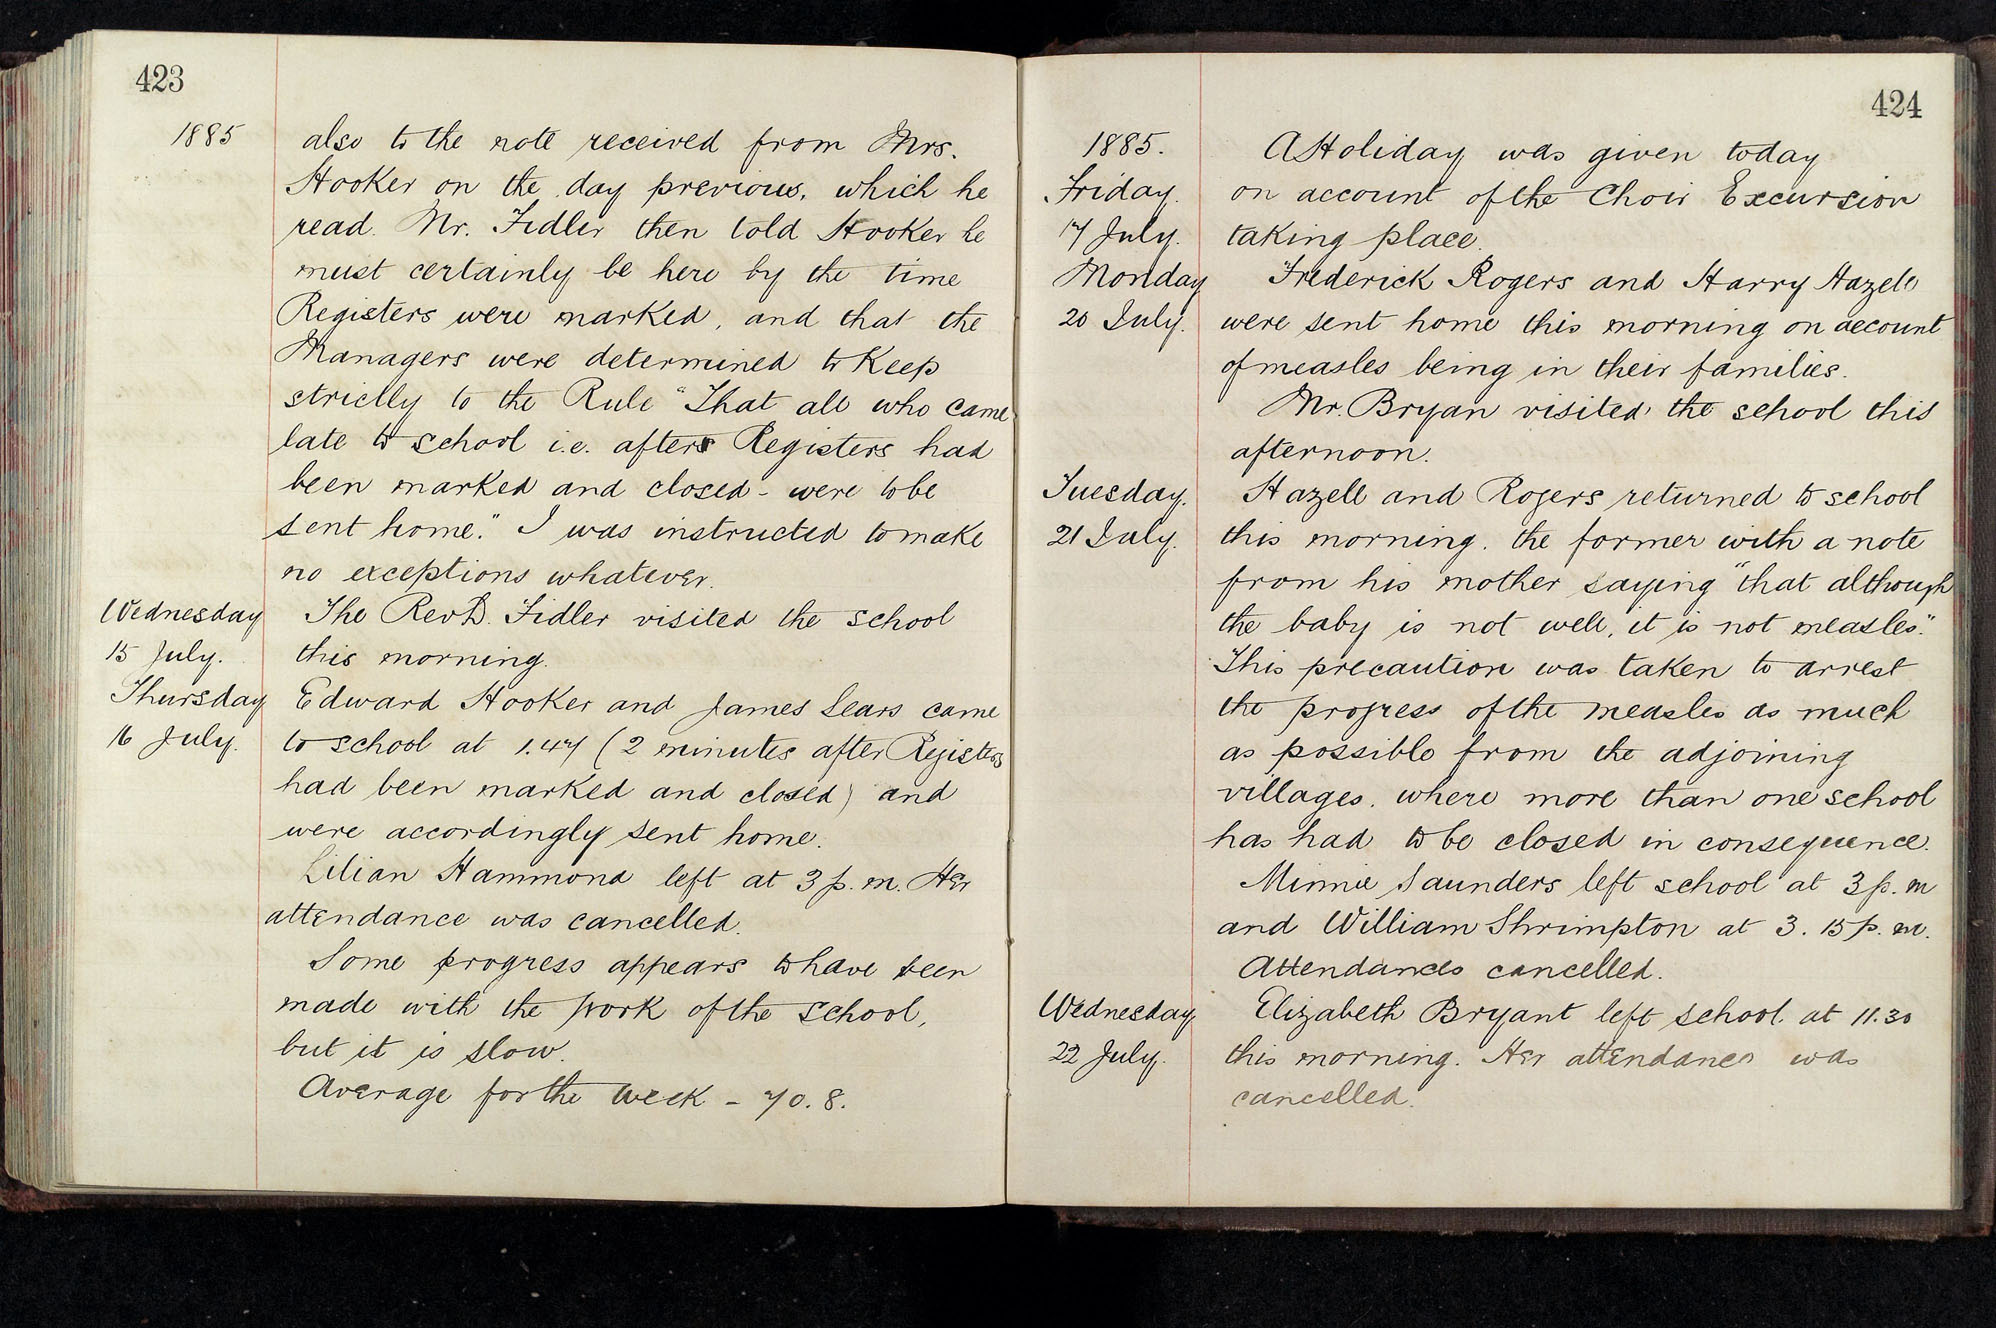 423
1885
also to the note received from Mrs.
Hooker on the day previous, which he
read. Mr. Fidler then told Hooker he
must certainly be here by the time
Registers were marked, and that the
Managers were determined to keep
strictly to the Rule "That all who came
late to school i.e. after Registers had
been marked and closed - were to be
sent home." I was instructed to make
no exceptions whatever.
Wednesday The Revd. Fidler visited the school
15 July. this morning.
Thursday Edward Hooker and James Sears came
16 July. to school at 1.47 (2 minutes after Registers
had been marked and closed) and
were accordingly sent home.
Lilian Hammond left at 3 p.m. Her
attendance was cancelled.
Some progress appears to have been
made with the work of the school,
but it is slow.
Average for the week - 70.8.
424
1885. A Holiday was given today
Friday. on account of the Choir Excursion
17 July. taking place.
Monday Frederick Rogers and Harry Hazell
20 July. were sent home this morning on account
of measles being in their families.
Mr. Bryan visited the school this
afternoon.
Tuesday. Hazell and Rogers returned to school
21 July. this morning. the former with a note
from his mother saying "that although
the baby is not well, it is not measles."
This precaution was taken to arrest
the progress of the measles as much
as possible from the adjoining
villages. where more than one school
has had to be closed in consequence.
Minnie Saunders left school at 3 p.m
and William Shrimpton at 3.15 p.m.
Attendances cancelled.
Wednesday Elizabeth Bryant left school at 11.30
22 July. this morning. Her attendance was
cancelled.